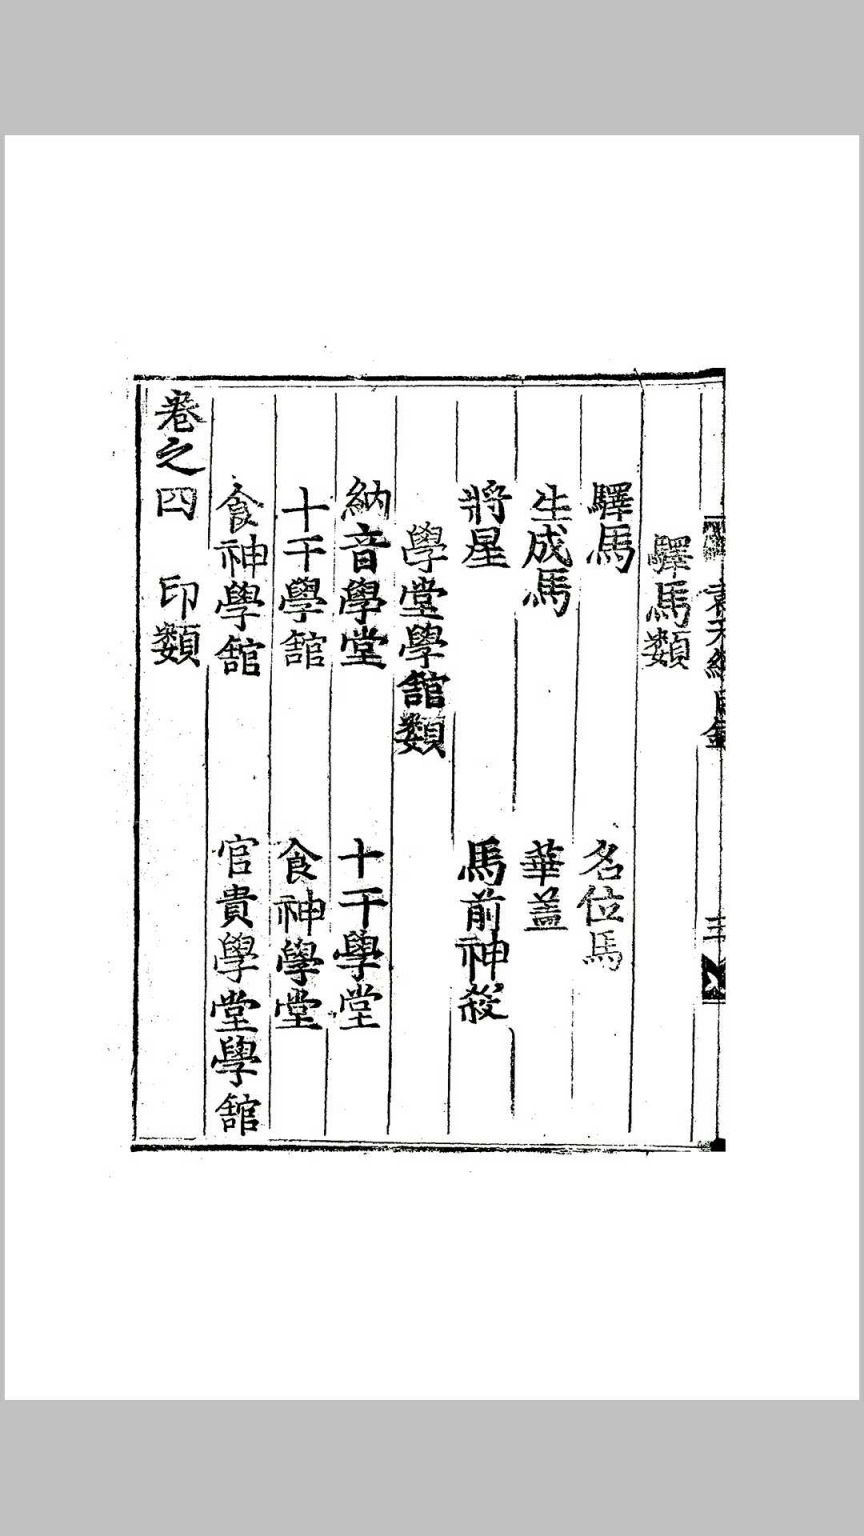 驛馬類
驛馬　名位馬
生成馬　華盖
將星　馬前神殺
學堂學舘類
納音學堂　十干學堂
十干學舘　食神學堂
食神學舘　官貴學堂學舘
卷之四　印類